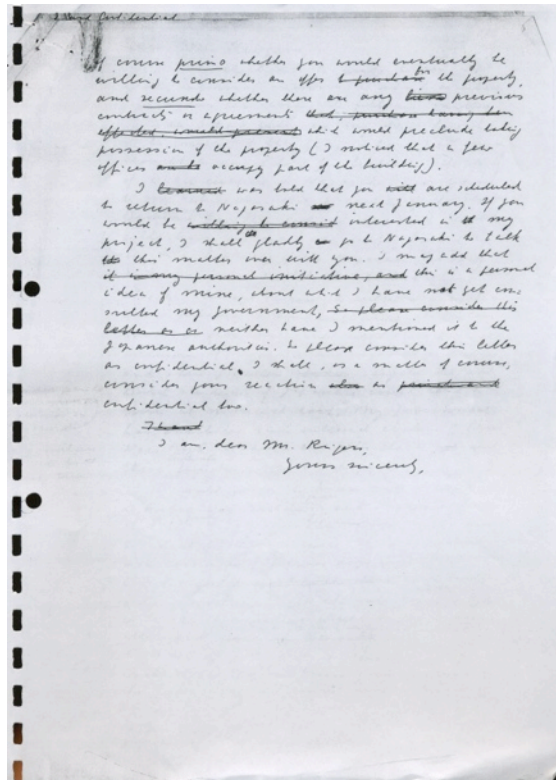 and Confidential
Of course primo whether you would eventually be
willing to consider an offer to purchase for the property,
and secundo whether there are any previous
contracts or agreements that, purchase having been
effected, would prevent which would preclude taking
possession of the property (I noticed that a few
offices occupy part of the building).
I learned was told that you will are scheduled
to return to Nagasaki next January. If you
would be willing to commit interested in my
project, I shall gladly go to Nagasaki to talk
this matter over with you. I may add that
it is my personal initiative, and this is a personal
idea of mine, about which I have not yet con-
sulted my government, so please consider this
letter as neither have I mentioned it to the
Japanese authorities. So please consider this letter
as confidential. I shall, as a matter of course,
consider your reaction as
confidential too.
Thank
I am, dear Mr. Rogers,
Yours sincerely,